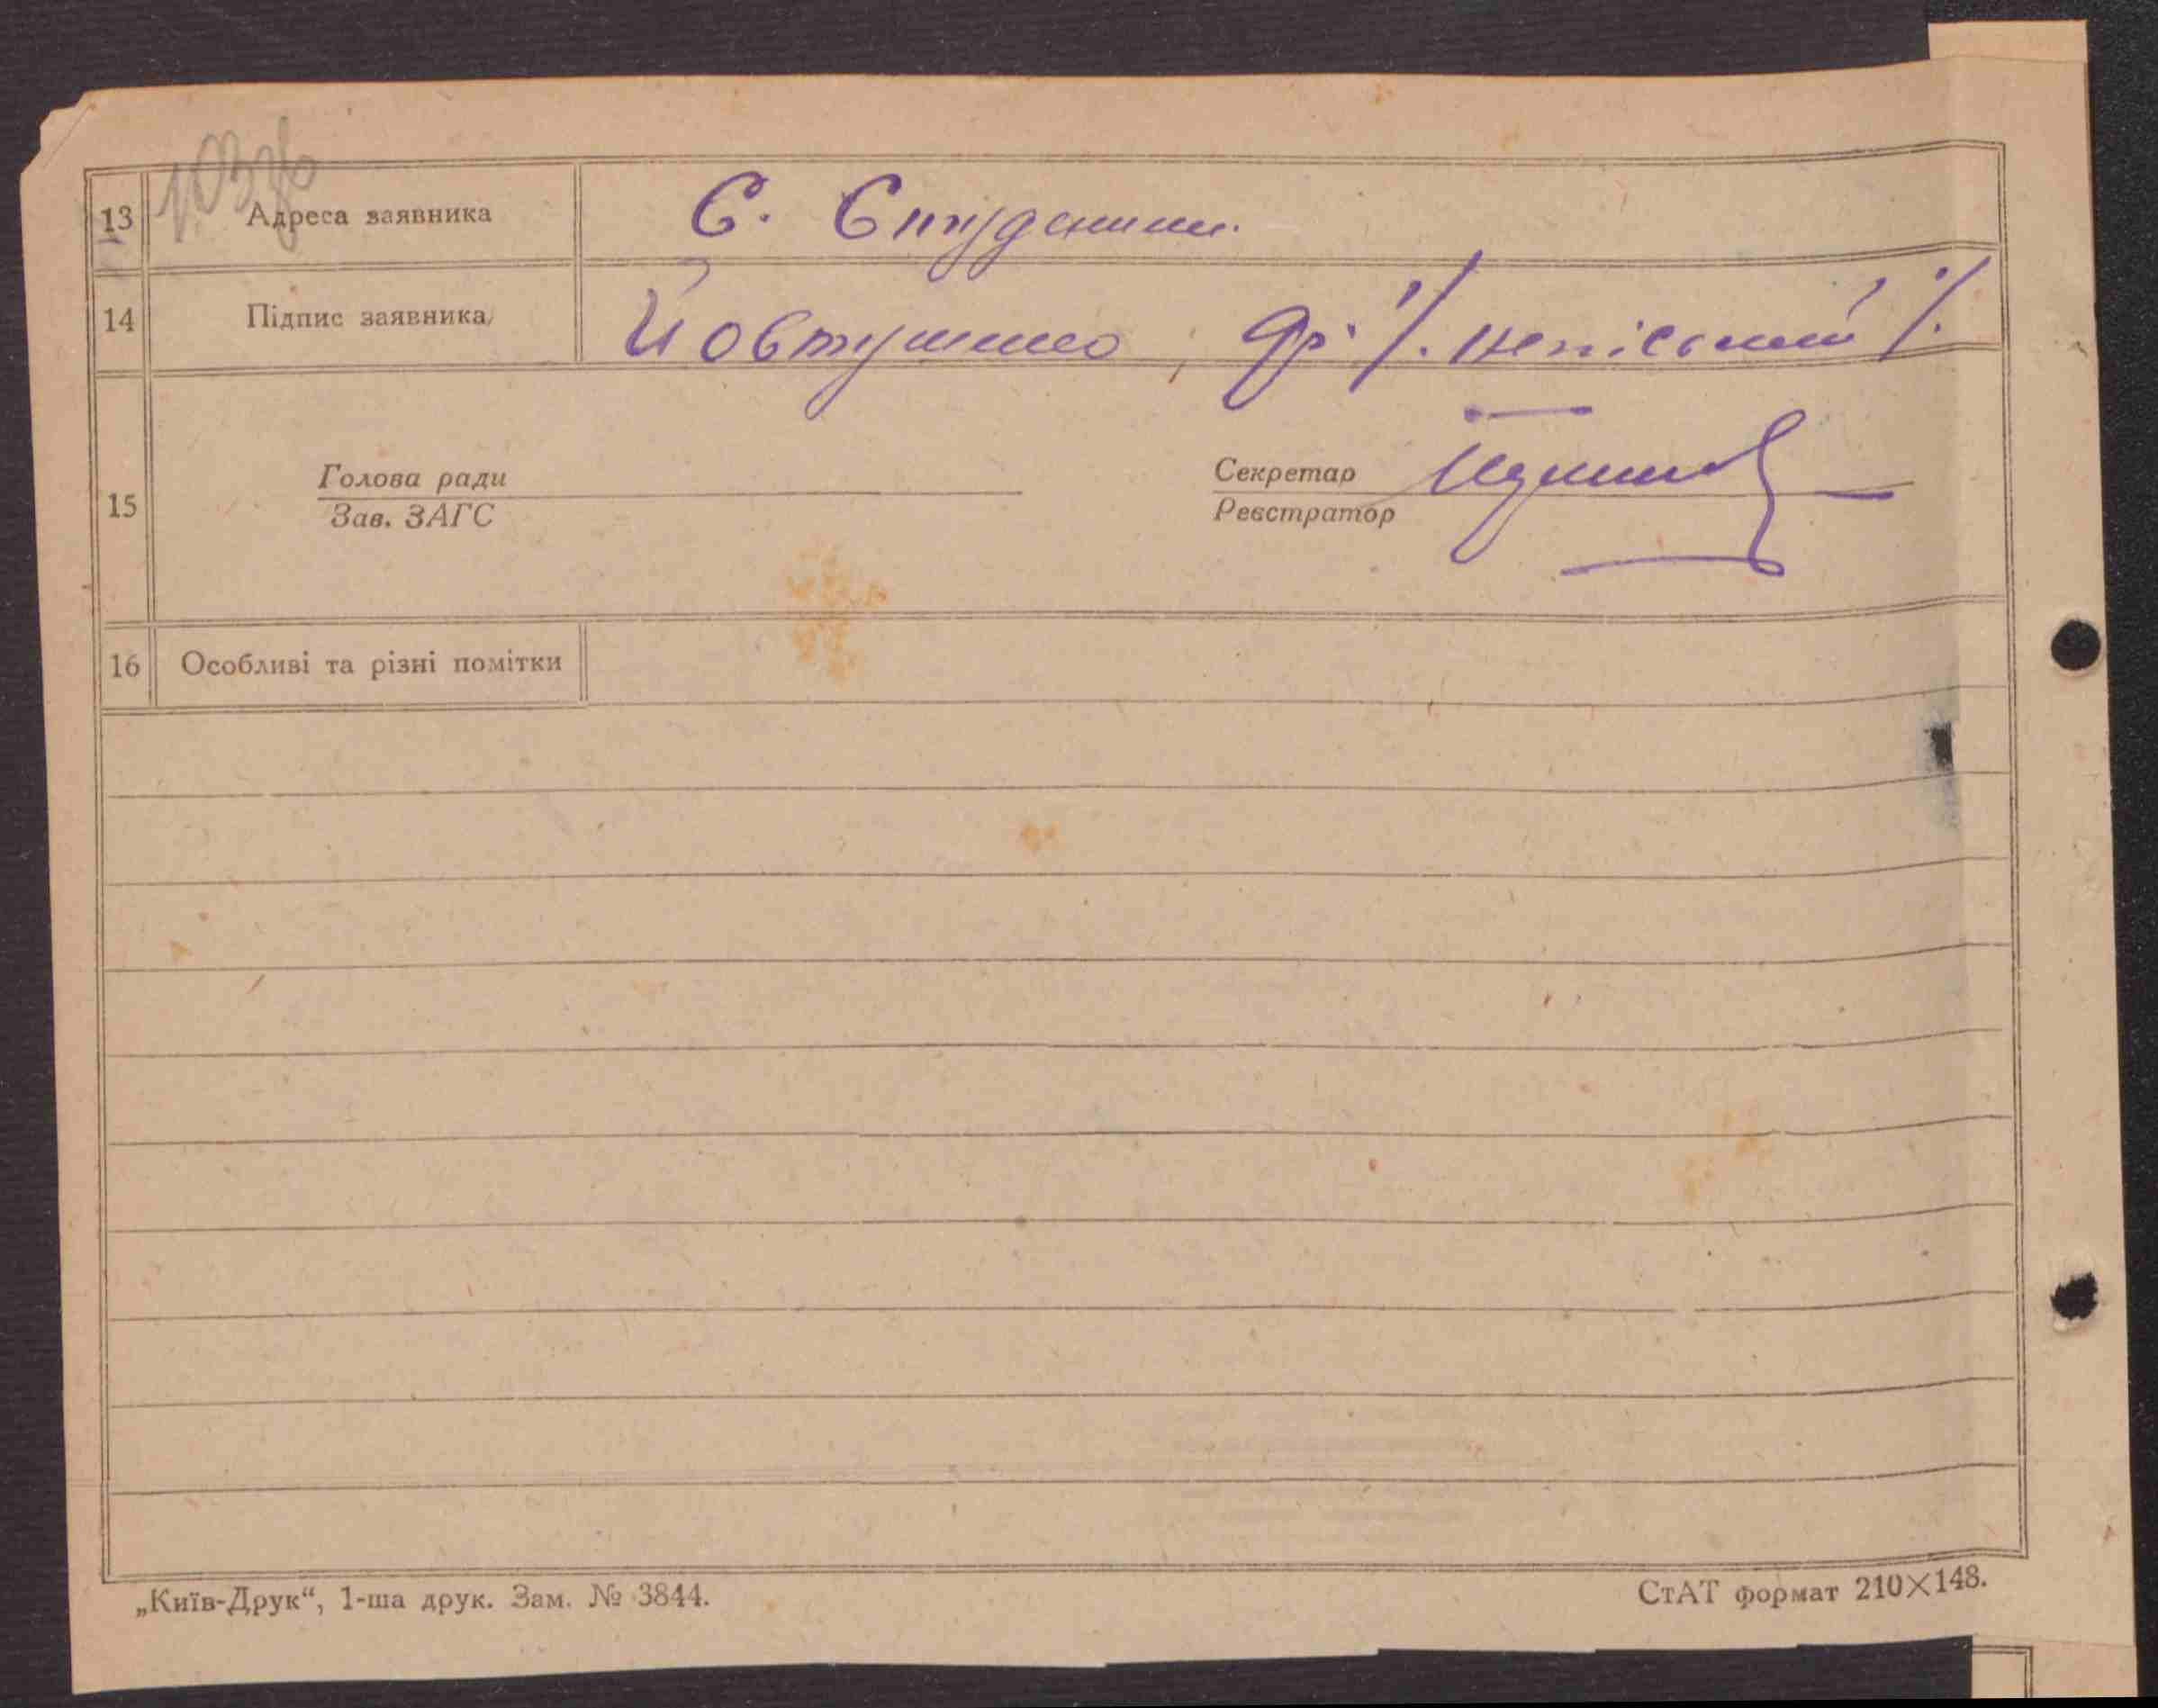 13 Адреса заявника С. Студеники.
14 Підпис заявника Йовтушко, др. /. неписьмен /.
Голова ради Секретар
15
Зав. ЗАГС Реєстратор
16 Особливі та різні помітки
„Київ-Друк“, 1-ша друк. Зам. № 3844. СтАТ формат 210×148.